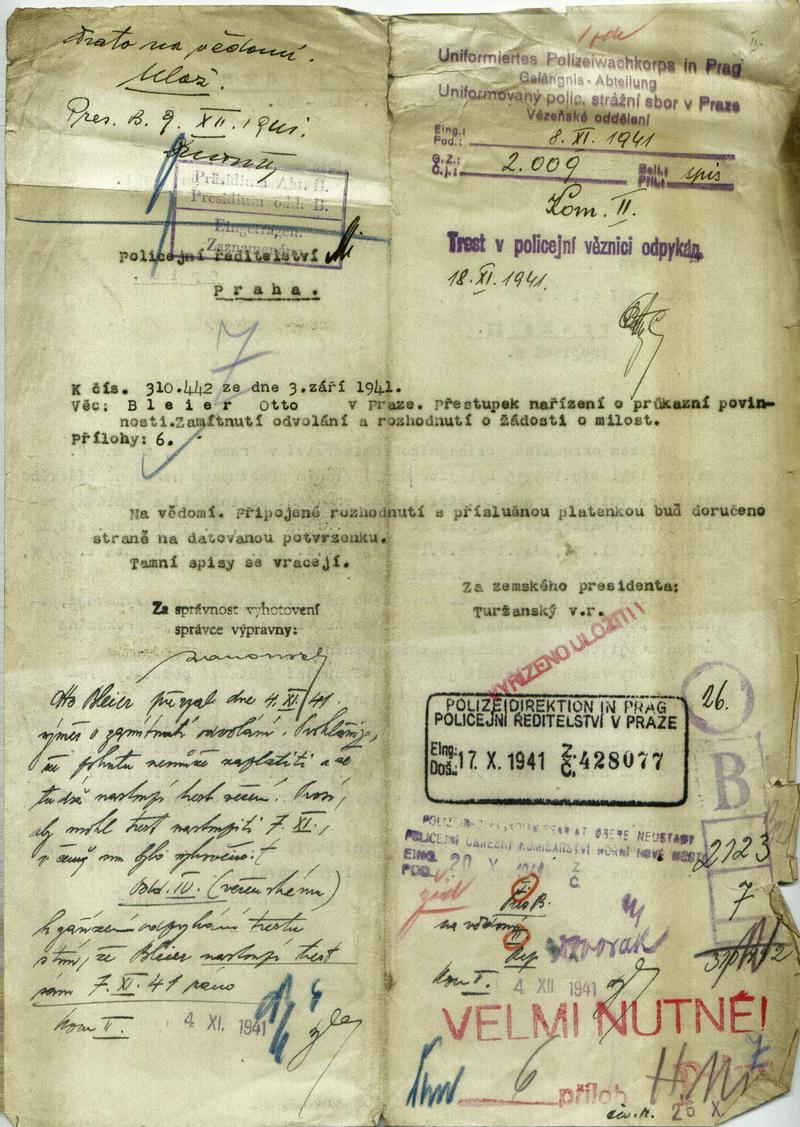 Brato na vědomí.
Ulož.
Pres. B. 9. XII. 1941.
Präsidium Abt. B.
Presidium odd. B.
Eingetragen:
Zaznamenáno:
Policejní ředitelství
Praha.
Uniformiertes Polizeiwachkorps in Prag
Gefängnis - Abteilung
Uniformovaný polic. strážní sbor v Praze
Vězeňské oddělení
Eing.:
Pod.: 8. XI. 1941
G.Z.:
Č.j.: 2.009 Beil.:
Příl.: spis
Kom. II.
Trest v policejní věznici odpykán.
18. XI. 1941.
7
K čís. 310.442 ze dne 3.září 1941.
Věc: Bleier Otto v Praze. Přestupek nařízení o průkazní povin-
nosti.Zamítnutí odvolání a rozhodnutí o žádosti o milost.
Přílohy: 6.
Na vědomí. Připojené rozhodnutí s příslušnou platenkou buď doručeno
straně na datovanou potvrzenku.
Tamní spisy se vracejí.
Za zemského presidenta:
Turžanský v.r.
Za správnost vyhotovení
správce výpravny:
VYŘÍZENO ULOŽITI!
Otto Bleier převzal dne 4. XI. 41.
výměr o zamítnutí odvolání. Prohlašuje,
že pokutu nemůže zaplatiti a se
tudíž nastoupí trest vězení. Prosí,
aby mohl trest nastoupiti 7. XI.,
v čemž mu bylo vyhověno.
Odd. IV. (vězeňskému)
k zařízení odpykání trestu
s tím, že Bleier nastoupí trest
sám 7. XI. 41 ráno
Kom II.
4 XI. 1941
POLIZEIDIREKTION IN PRAG
POLICEJNÍ ŘEDITELSTVÍ V PRAZE
Eing.:
Doš.: 17. X. 1941 Z.
Č. 428077
26.
B
2123
7
POLICEJNÍ ÚŘEDNÍ KOMISAŘSTVÍ HORNÍ NOVÉ MĚSTO
EING.
POD. 20 X. 1941 Z
Č
žid
Pres B.
na vědomí
Dvorak
4 XII 1941
VELMI NUTNÉ!
6 příloh
26 X.